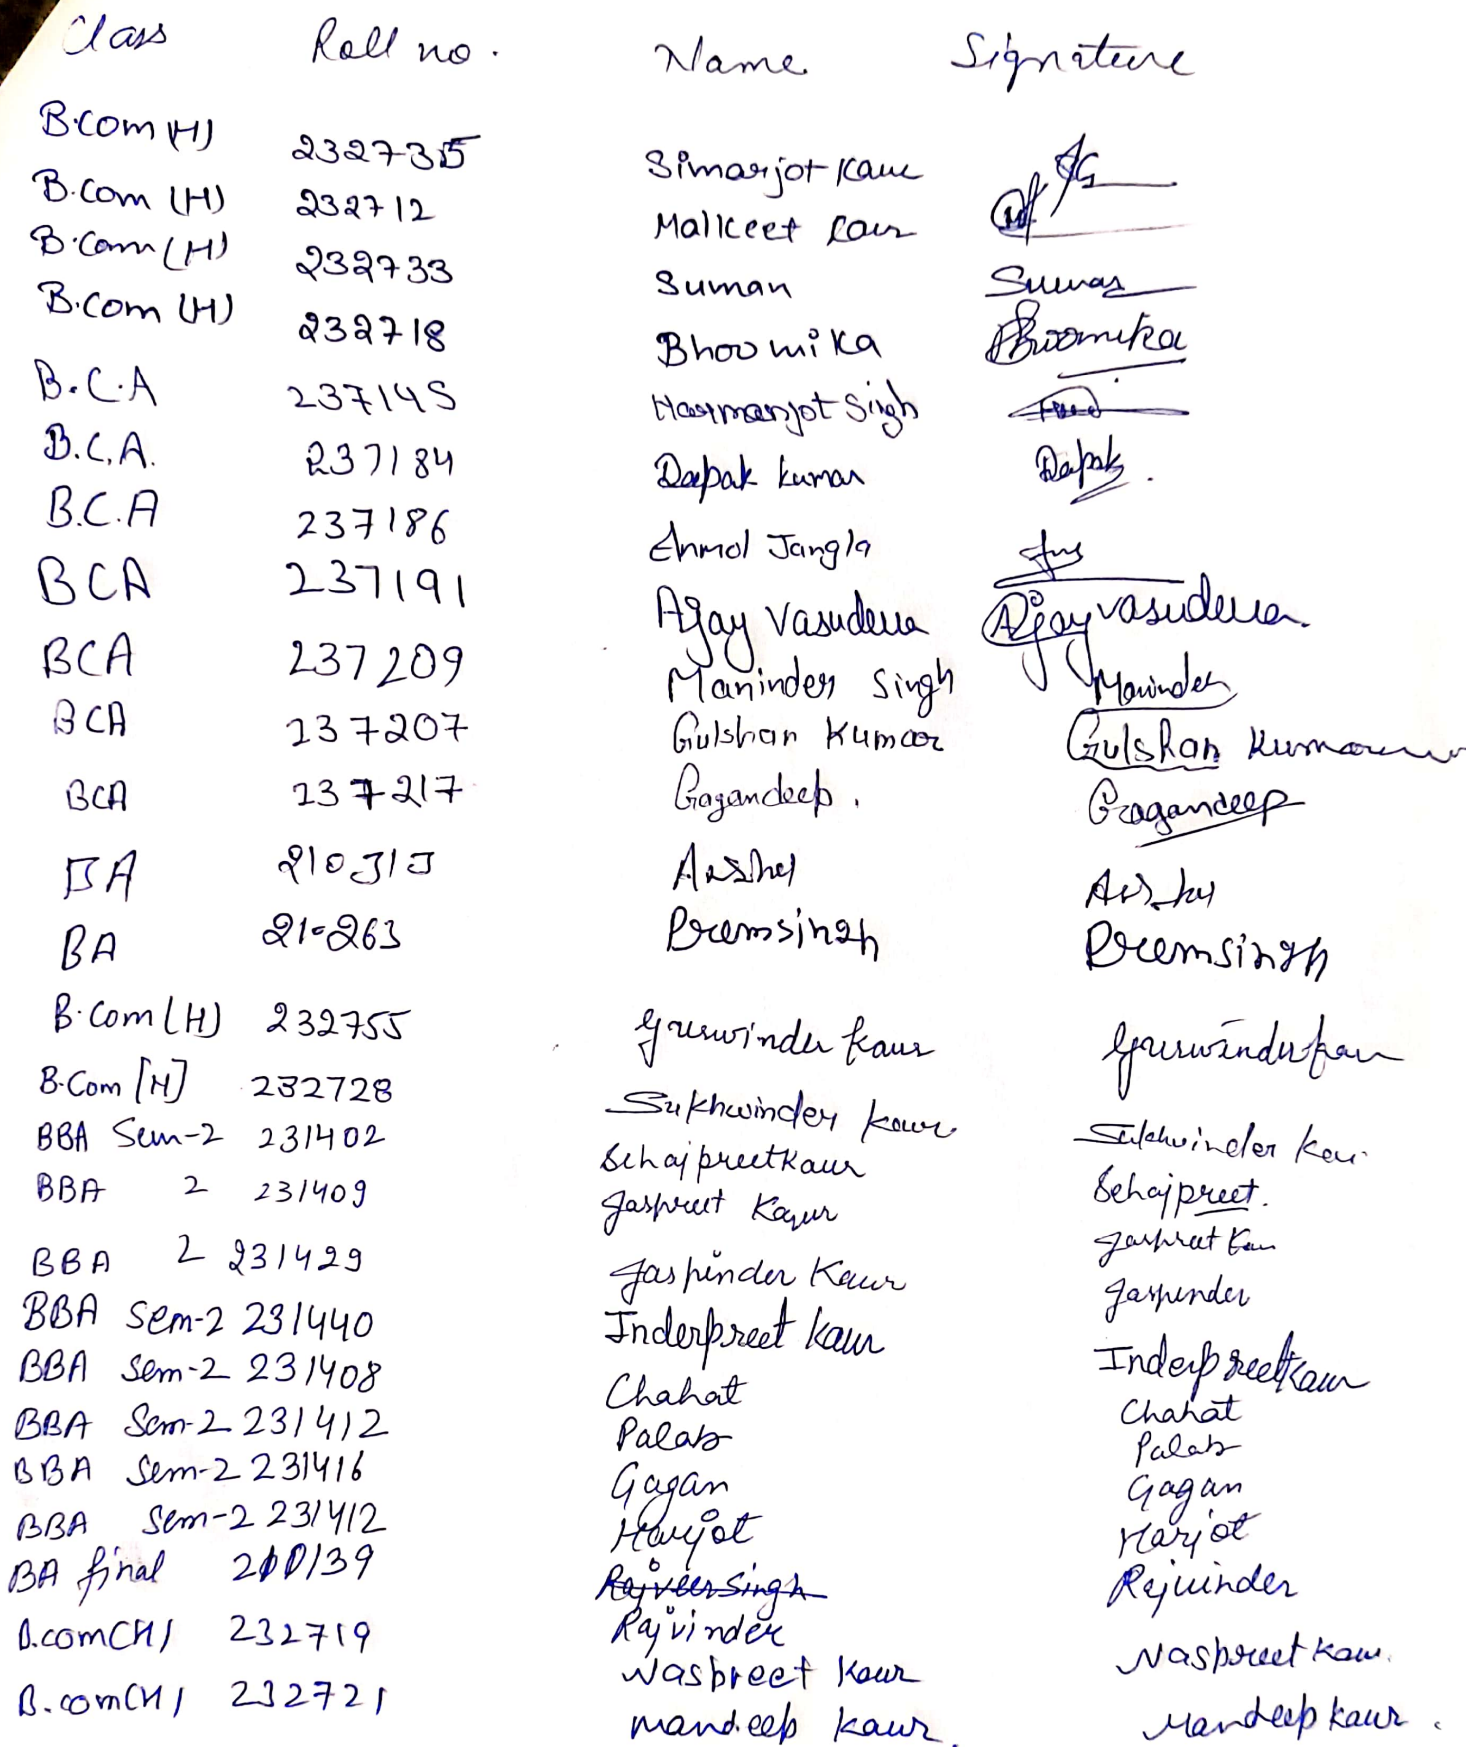 Class Roll no. Name Signature
B.Com (H) 232735 Simarjot Kaur
B.Com (H) 232712 Malkeet Kaur
B.Com (H) 232733 Suman Suman
B.Com (H) 232718 Bhoomika Bhoomika
B.C.A 237145 Harmanjot Singh
B.C.A. 237184 Deepak kumar Deepak.
B.C.A 237186 Anmol Jangla
BCA 237191 Ajay Vasudeva Ajay vasudeva.
BCA 237209 Maninder Singh Maninder
BCA 237207 Gulshan Kumar Gulshan Kumar
BCA 237217 Gagandeep. Gagandeep
BA
BA 210263 Premsingh Premsingh
B.Com (H) 232755 Gurwinder kaur Gurwinder kaur
B.Com [H] 232728 Sukhwinder kaur Sukhwinder kaur
BBA Sem-2 231402 Sehajpreet Kaur Sehajpreet.
BBA 2 231409 Jaspreet Kaur Jaspreet Kaur
BBA 2 231429 Jaspinder Kaur Jaspinder
BBA Sem-2 231440 Inderpreet kaur Inderpreet kaur
BBA Sem-2 231408 Chahat Chahat
BBA Sem-2 231412 Palak Palak
BBA Sem-2 231416 Gagan Gagan
BBA Sem-2 231412 Harjot Harjot
BA final 210139 Rajveer Singh Rajvinder
Rajvinder
B.com(H) 232719 Naspreet Kaur Naspreet kaur.
B.com(H) 232721 Mandeep kaur. Mandeep kaur.